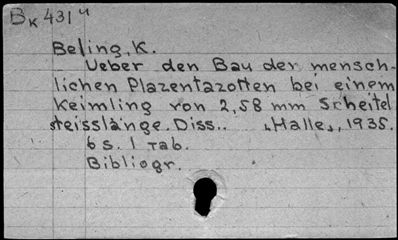 Bk 431 u
Beling, K.
Ueber den Bau der mensch-
lichen Plazentazotten bei einem
Keimling von 2,58 mm Scheitel
steisslänge. Diss.. "Halle", 1935.
6 s. 1 Tab.
Bibliogr.